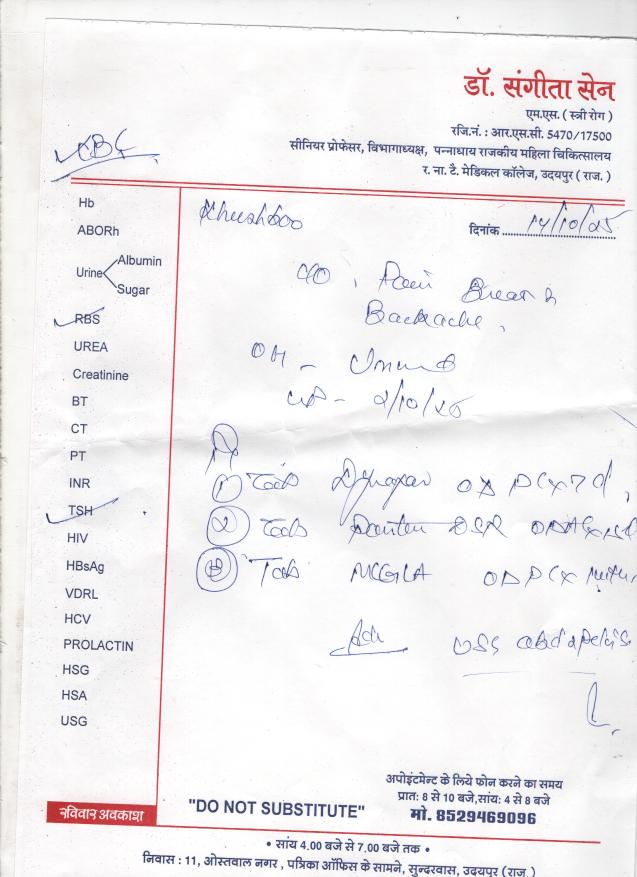 डॉ. संगीता सेन
एम.एस. ( स्त्री रोग )
रजि.नं. : आर.एस.सी. 5470/17500
सीनियर प्रोफेसर, विभागाध्यक्ष, पन्नाधाय राजकीय महिला चिकित्सालय
र. ना. टै. मेडिकल कॉलेज, उदयपुर ( राज. )
CBC
Khushboo
दिनांक 14/10/25
Hb
ABORh
Urine Albumin
Sugar
RBS
UREA
Creatinine
BT
CT
PT
INR
TSH
HIV
HBsAg
VDRL
HCV
PROLACTIN
HSG
HSA
USG
c/o Pain Breast
Backache
OH -
- 2/10/25
1 Tab OD PC x 7d
2 Tab DSR
3 Tab OD PC x
Adv USG abd & pelvis
अपोइंटमेन्ट के लिये फोन करने का समय
प्रात: 8 से 10 बजे,सांय: 4 से 8 बजे
मो. 8529469096
रविवार अवकाश
"DO NOT SUBSTITUTE"
• सांय 4.00 बजे से 7.00 बजे तक •
निवास : 11, ओस्तवाल नगर , पत्रिका ऑफिस के सामने, सुन्दरवास, उदयपुर (राज.)